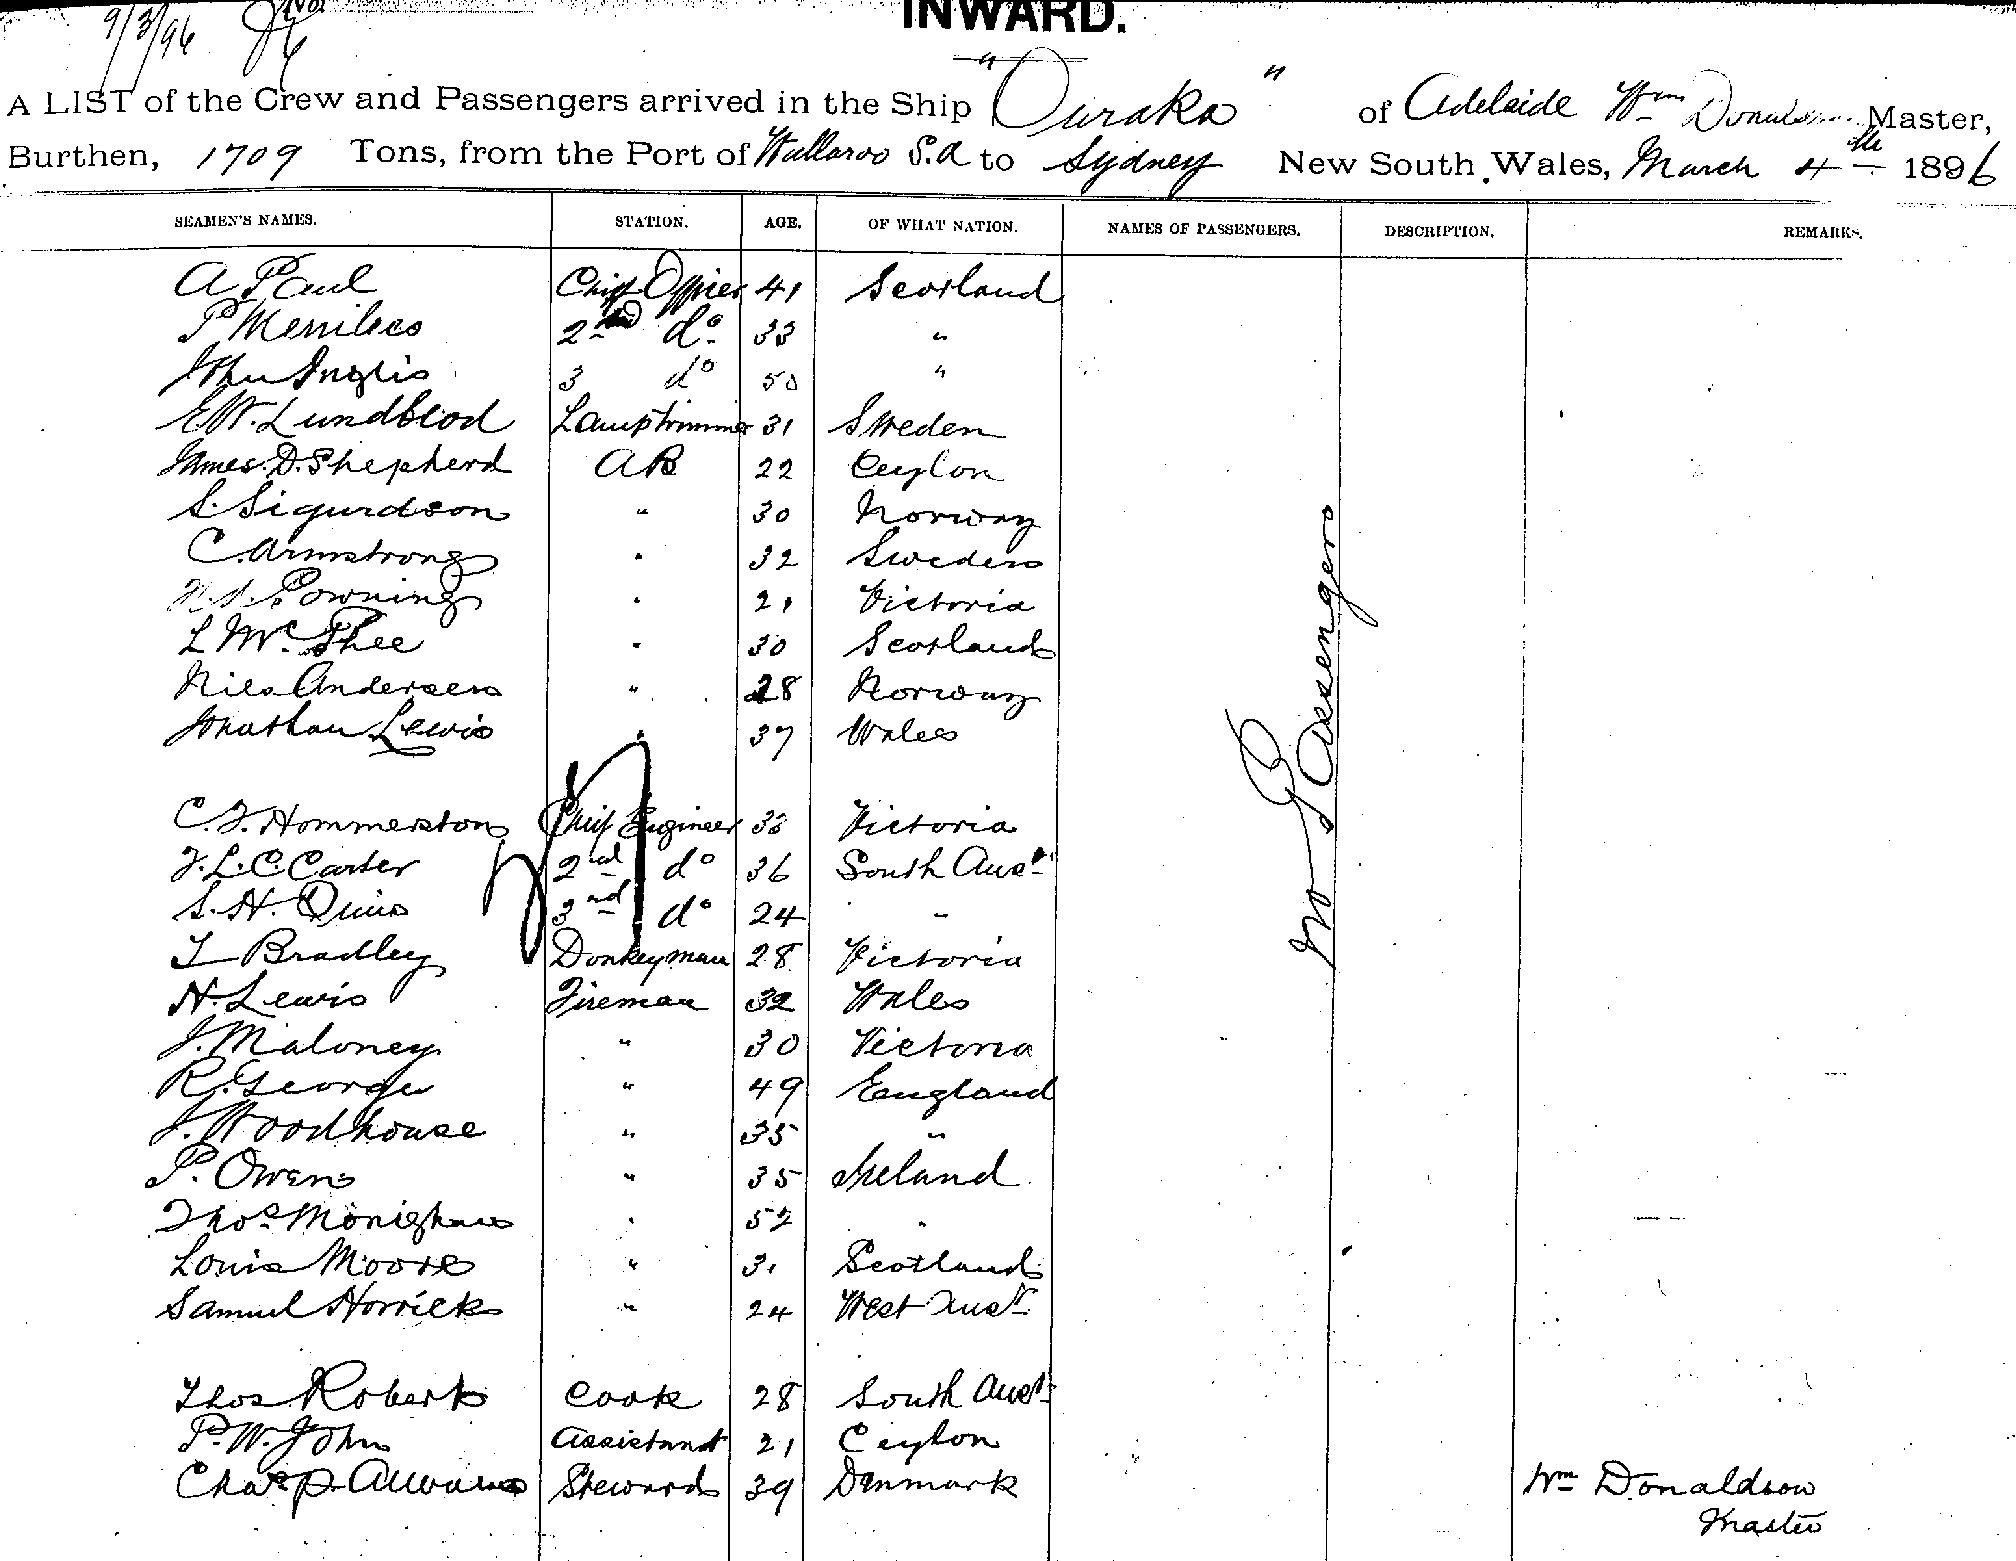 9/3/96
INWARD.
A LIST of the Crew and Passengers arrived in the Ship "Ouraka" of Adelaide Wm Donaldson Master,
Burthen, 1709 Tons, from the Port of Wallaroo S.A to Sydney New South Wales, March 4th 1896
SEAMEN'S NAMES. STATION. AGE. OF WHAT NATION. NAMES OF PASSENGERS. DESCRIPTION. REMARKS.
A Paul Chief Officer 41 Scotland
P Merrilees 2nd do 33 "
John Inglis 3 do 50 "
E.W. Lundblod Lamptrimmer 31 Sweden
James D. Shepherd AB 22 Ceylon
S. Sigurdson " 30 Norway
C. Armstrong " 32 Sweden
Powning " 21 Victoria
L Mc Phee " 30 Scotland
Niels Andersen " 28 Norway
Jonathan Lewis " 37 Wales
C.F. Hommerston Chief Engineer 33 Victoria
F.L.C. Carter 2nd do 36 South Aust
S.H. Quin 3rd do 24 "
T Bradley Donkeyman 28 Victoria
H. Lewis Fireman 32 Wales
J. Maloney " 30 Victoria
R. George " 49 England
J. Woodhouse " 35 "
P. Owens " 35 Ireland
Thos Monighan " 52 "
Louis Moore " 31 Scotland
Samuel Horrick " 24 West Aust
Thos Roberts Cook 28 South Aust
P.W. John Assistant 21 Ceylon
Chas P. Steward 39 Denmark
No Passengers
Wm Donaldson
Master